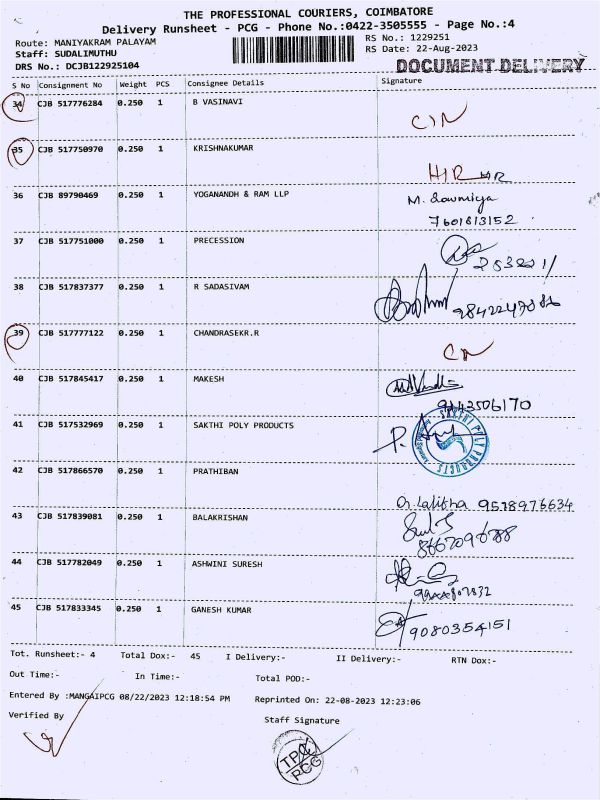 THE PROFESSIONAL COURIERS, COIMBATORE
Delivery Runsheet - PCG - Phone No.:0422-3505555 - Page No.:4
Route: MANIYAKRAM PALAYAM RS No.: 1229251
Staff: SUDALIMUTHU RS Date: 22-Aug-2023
DRS No.: DCJB122925104 DOCUMENT DELIVERY
S No Consignment No Weight PCS Consignee Details Signature
34 CJB 517776284 0.250 1 B VASINAVI
35 CJB 517750970 0.250 1 KRISHNAKUMAR
36 CJB 89790469 0.250 1 YOGANANDH & RAM LLP M. Sowmiya
7601613152
37 CJB 517751000 0.250 1 PRECESSION
38 CJB 517837377 0.250 1 R SADASIVAM
39 CJB 517777122 0.250 1 CHANDRASEKR.R
40 CJB 517845417 0.250 1 MAKESH
9143506170
41 CJB 517532969 0.250 1 SAKTHI POLY PRODUCTS SAKTHI POLY PRODUCTS
42 CJB 517866570 0.250 1 PRATHIBAN
Lalitha 9578976634
43 CJB 517839081 0.250 1 BALAKRISHAN
44 CJB 517782049 0.250 1 ASHWINI SURESH
45 CJB 517833345 0.250 1 GANESH KUMAR 9080354151
Tot. Runsheet:- 4 Total Dox:- 45 I Delivery:- II Delivery:- RTN Dox:-
Out Time:- In Time:- Total POD:-
Entered By :MANGAIPCG 08/22/2023 12:18:54 PM Reprinted On: 22-08-2023 12:23:06
Verified By Staff Signature
PCG